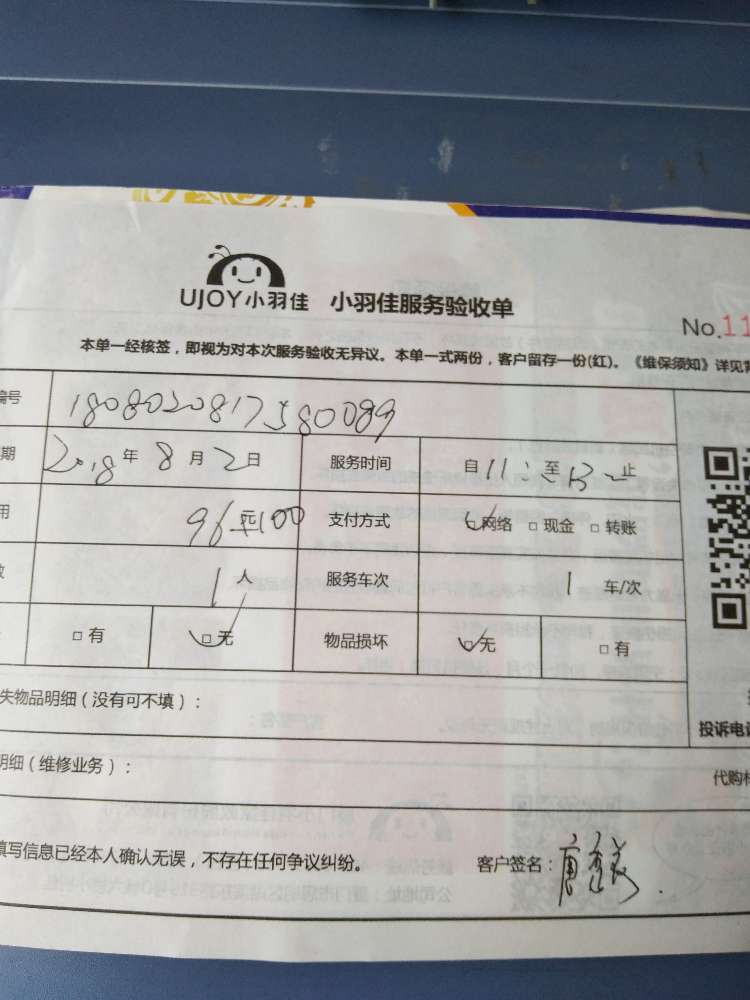 UJOY小羽佳 小羽佳服务验收单
No.11
本单一经核签，即视为对本次服务验收无异议。本单一式两份，客户留存一份(红)。《维保须知》详见背
编号 1808020817580089
期 2018年8月2日 服务时间 自11:至13:止
用 96 100 支付方式 网络 现金 转账
数 1人 服务车次 1车/次
有 无 物品损坏 无 有
失物品明细（没有可不填）：
投诉电话
明细（维修业务）：
代购材
填写信息已经本人确认无误，不存在任何争议纠纷。 客户签名：唐